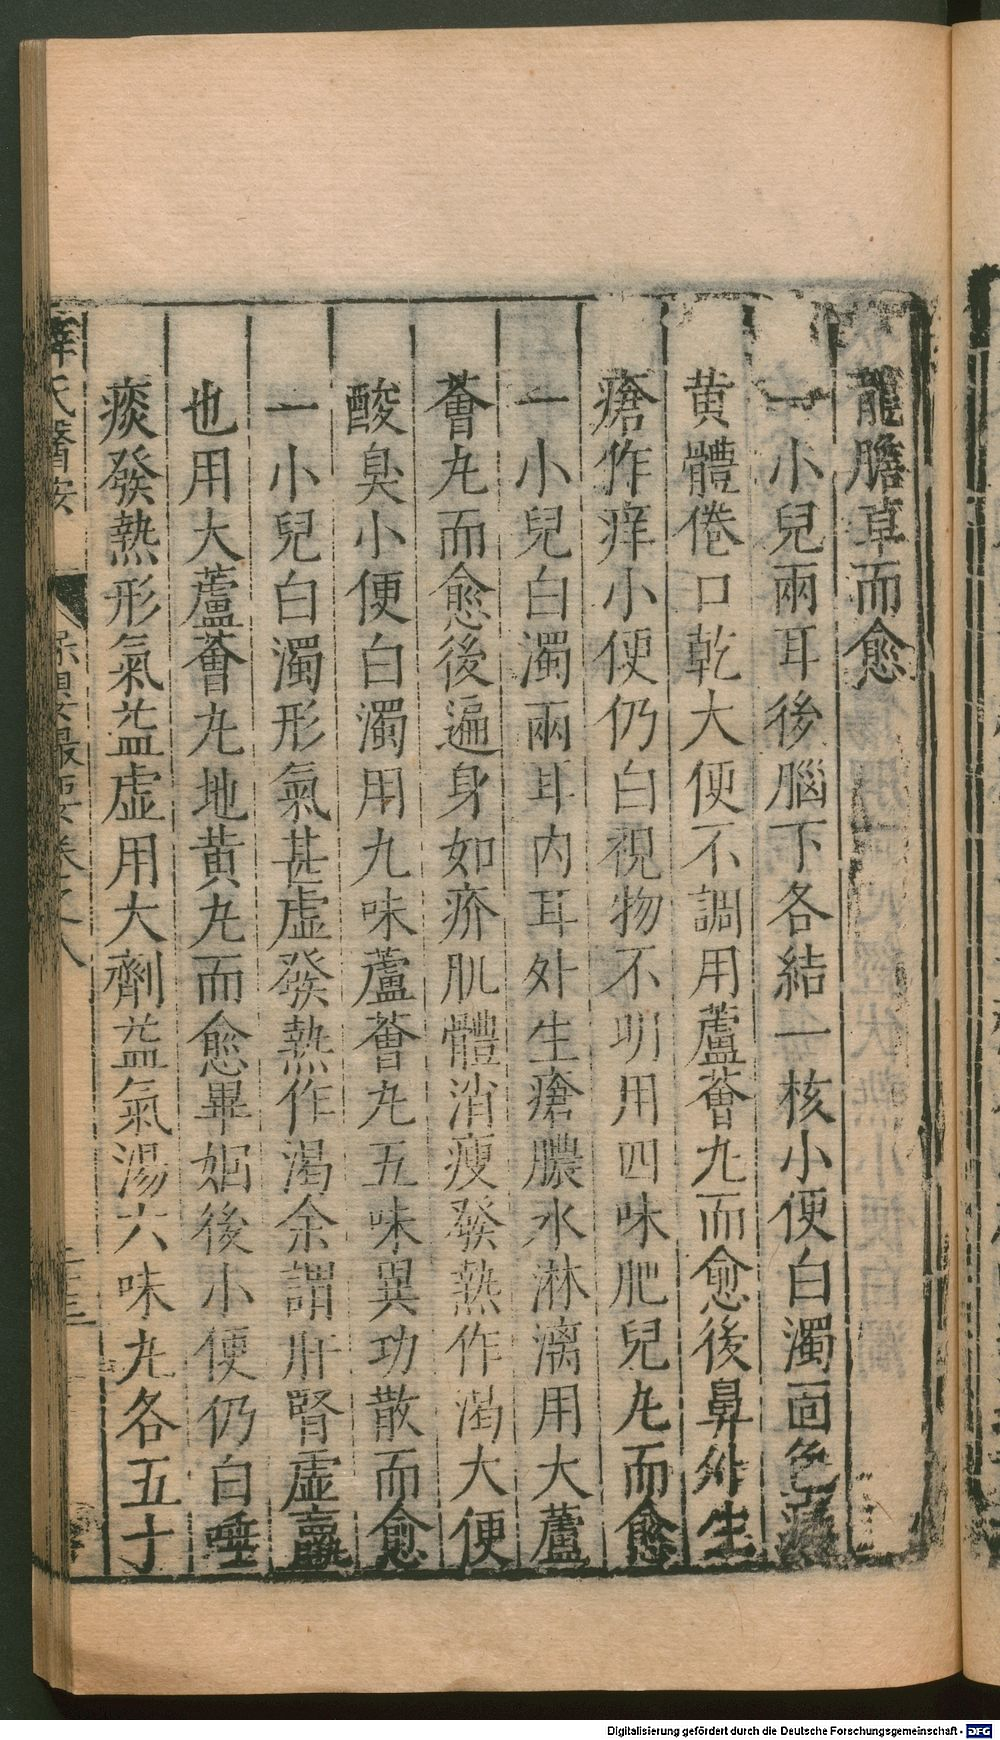 龍膽草而愈
一小兒兩耳後腦下各結一核小便白濁面色
黄體倦口乾大便不調用蘆薈丸而愈後鼻外生
瘡作痒小便仍白視物不明用四味肥兒丸而愈
一小兒白濁兩耳内耳外生瘡膿水淋漓用大蘆
薈丸而愈後遍身如疥肌體消瘦發熱作渴大便
酸臭小便白濁用九味蘆薈丸五味異功散而愈
一小兒白濁形氣甚虚發熱作渴余謂肝腎虚羸
也用大蘆薈丸地黄丸而愈畢姻後小便仍白唾
痰發熱形氣益虚用大劑益氣湯六味丸各五十
薛氏醫按 保嬰最要卷之八
Digitalisierung gefördert durch die Deutsche Forschungsgemeinschaft - DFG